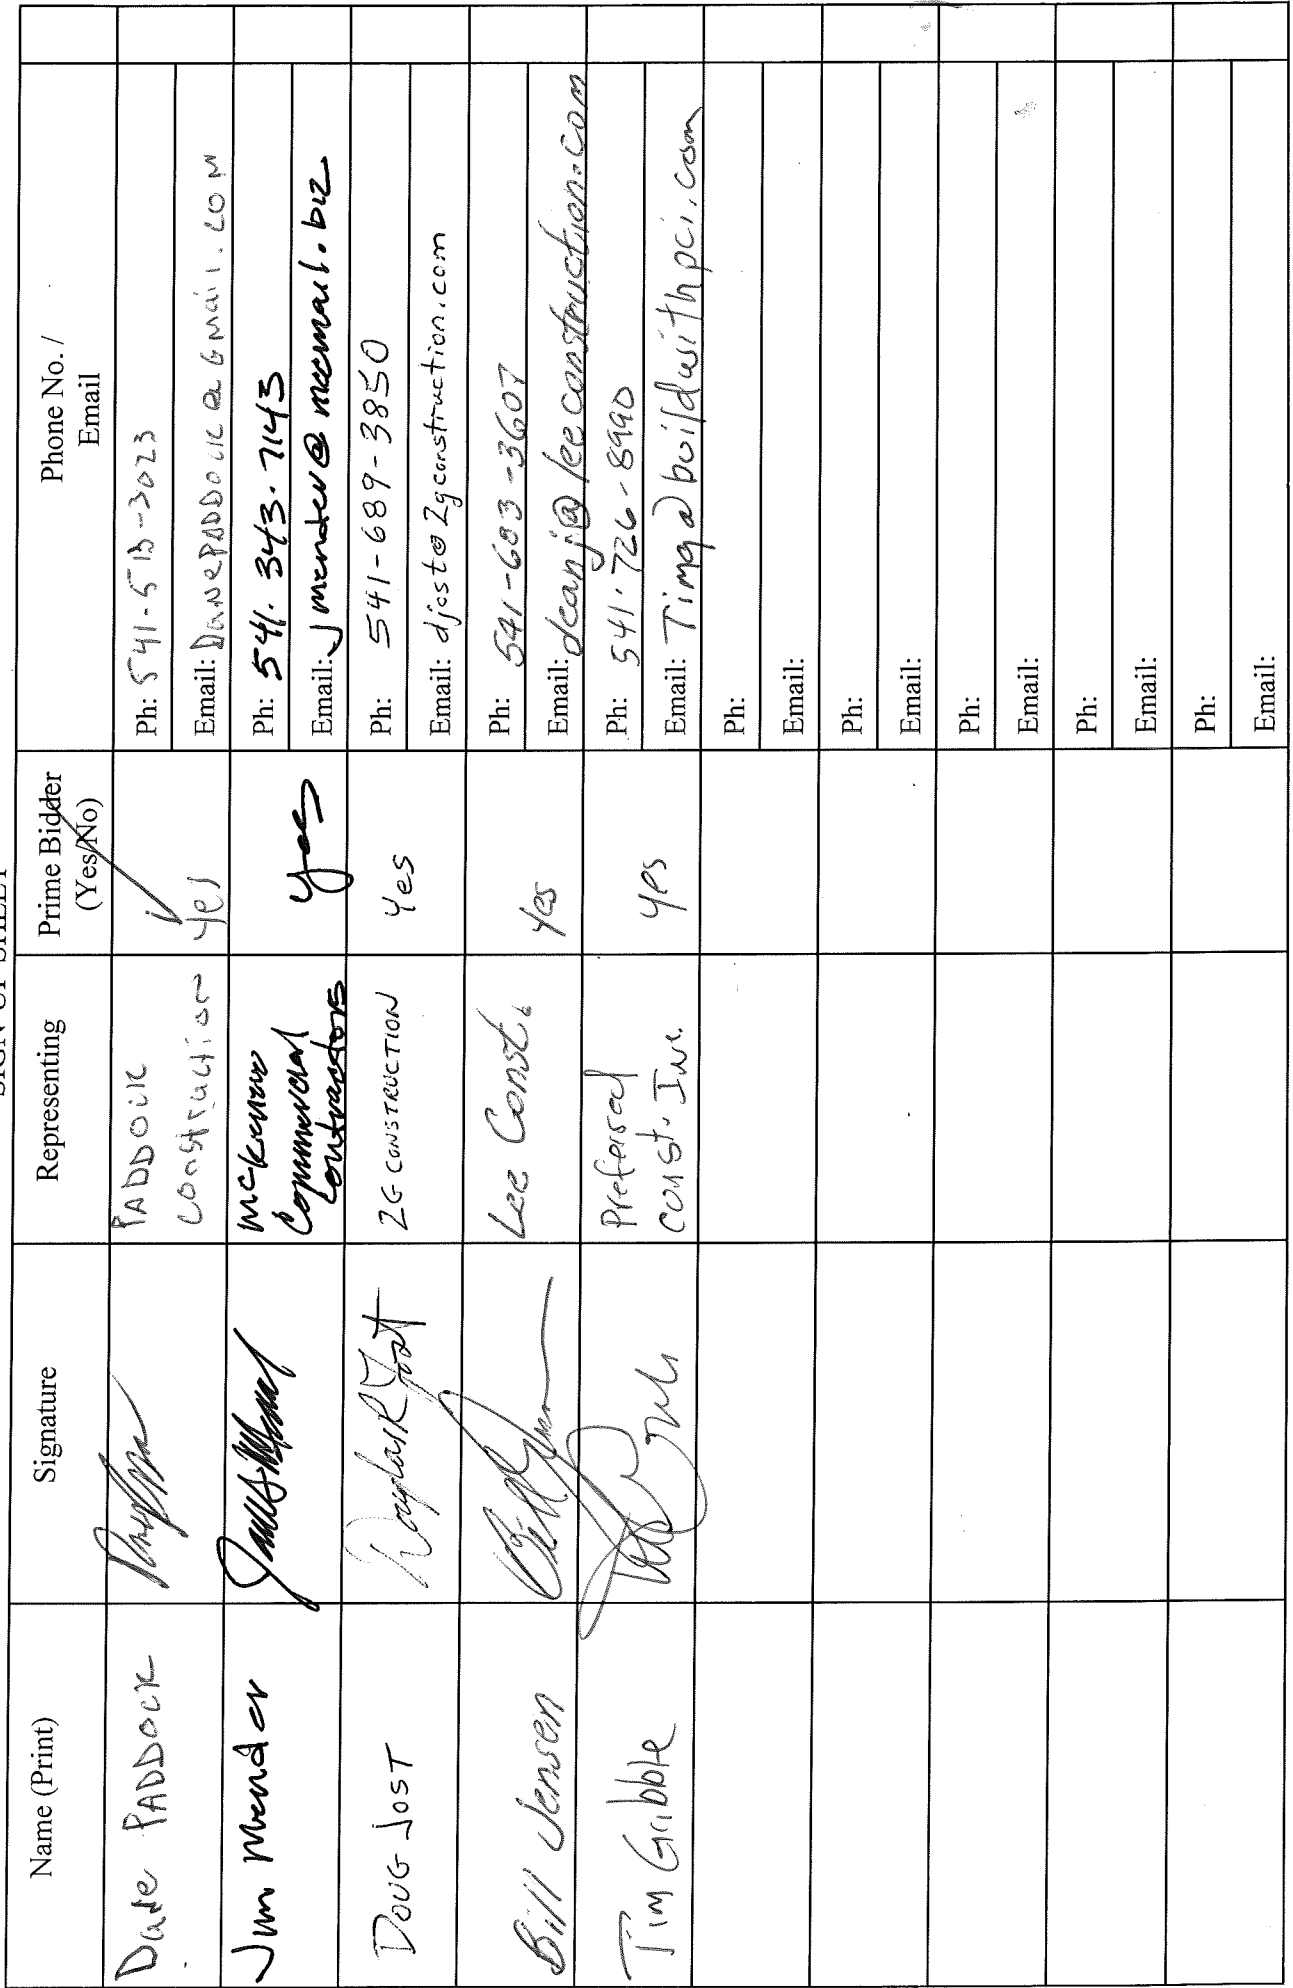 SIGN-UP SHEET
Name (Print) Signature Representing Prime Bidder (Yes/No) Phone No. / Email
PADDOCK PADDOCK Construction yes Ph: 541-513-3023
Email: DanePADDOCK@Gmail.com
Jim Mender McKenzie Commercial Contractors yes Ph: 541.343.7143
Email: Jmender@mccmail.biz
DOUG JOST Douglas R Jost 2G CONSTRUCTION Yes Ph: 541-689-3850
Email: djost@2gconstruction.com
Bill Jensen Lee Const. Yes Ph: 541-683-3607
Email: deanj@leeconstruction.com
Tim Gribble Preferred Const. Inc. yes Ph: 541.726-8990
Email: Timg@buildwithpci.com
Ph:
Email:
Ph:
Email:
Ph:
Email:
Ph:
Email:
Ph:
Email: